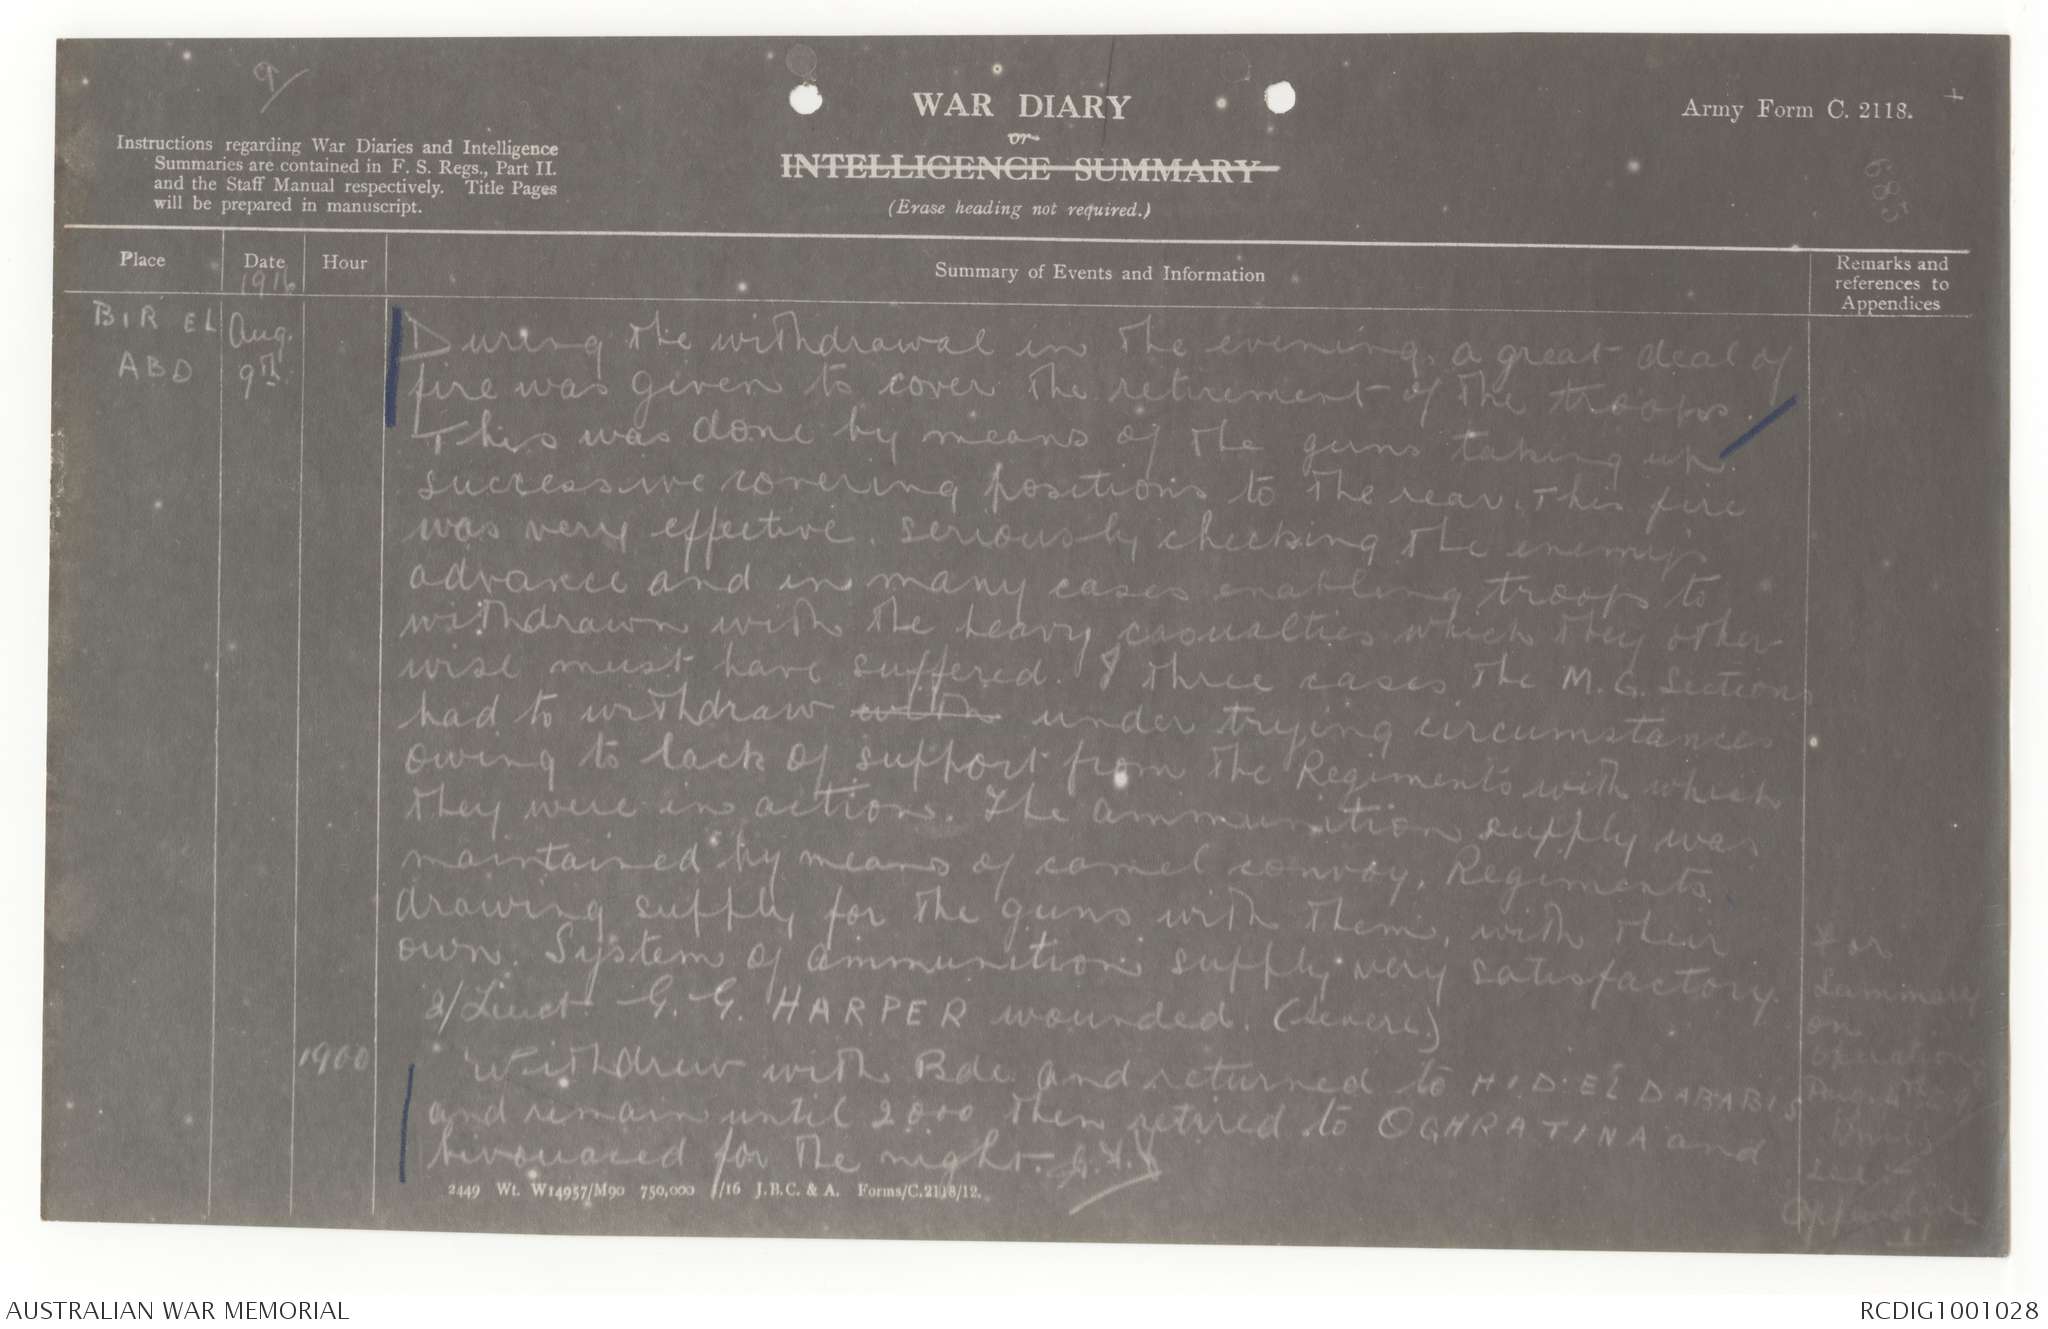 9/
WAR DIARY
or
INTELLIGENCE SUMMARY
(Erase heading not required.)
Army Form C. 2118.
685
Instructions regarding War Diaries and Intelligence
Summaries are contained in F. S. Regs., Part II.
and the Staff Manual respectively. Title Pages
will be prepared in manuscript.
Place
Date
1916
Hour
Summary of Events and Information
Remarks and
references to
Appendices
BIR EL
ABD
Aug.
9th
During the withdrawal in the evening, a great deal of
fire was given to cover the retirement of the troops.
This was done by means of the guns taking up
successive covering positions to the rear. This fire
was very effective. seriously checking the enemy's
advance and in many cases enabling troops to
withdrawn with the heavy casualties which they other-
wise must have suffered. I three cases the M.G. Sections
had to withdraw with under trying circumstances
owing to lack of support from the Regiments with which
they were in action. The ammunition supply was
maintained by means of camel convoy, Regiments
drawing supply for the guns with them, with their
own. System of ammunition supply very satisfactory.
2/Lieut G. G. HARPER wounded. (severe)
1900
Withdrew with Bde and returned to HOD. EL DABABIS
and remain until 2000 then retired to OGHRATINA and
bivouaced for the night.
For
Summary
on
Operations
Aug
see
Appendix
11
2449 Wt. W14957/M90 750,000 1/16 J.B.C. & A. Forms/C.2118/12.
AUSTRALIAN WAR MEMORIAL
RCDIG1001028